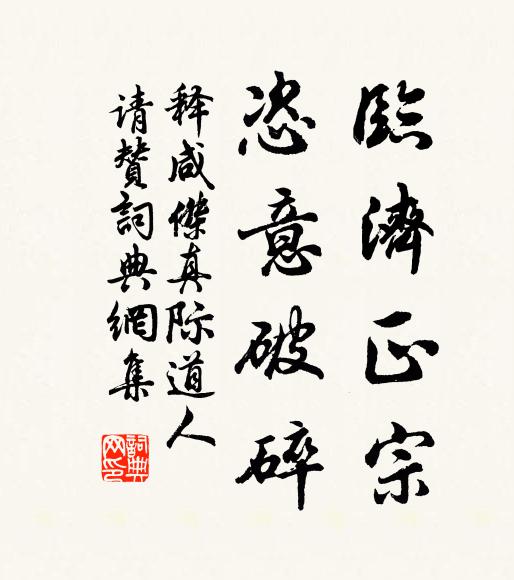 臨濟正宗
恣意破碎
释咸傑真际道人
请赞詞典網集
詞典
网印